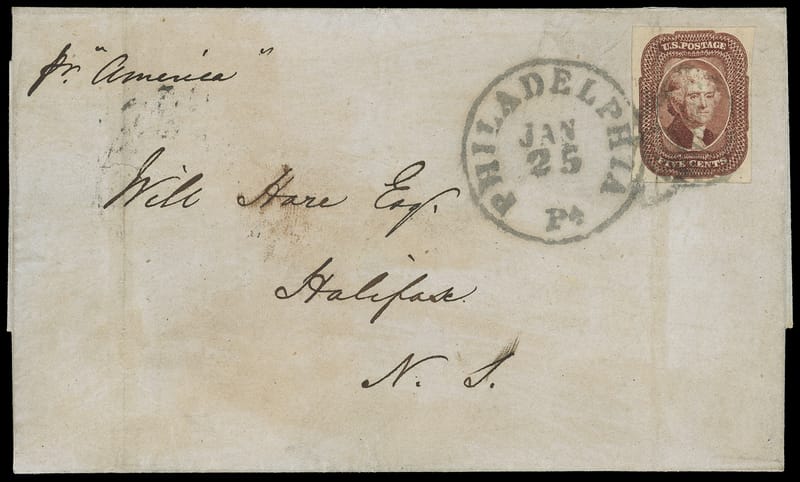 pr. "America"
U.S. POSTAGE
FIVE CENTS
PHILADELPHIA
JAN
25
Pa
Will Hare Esq.
Halifax
N. S.